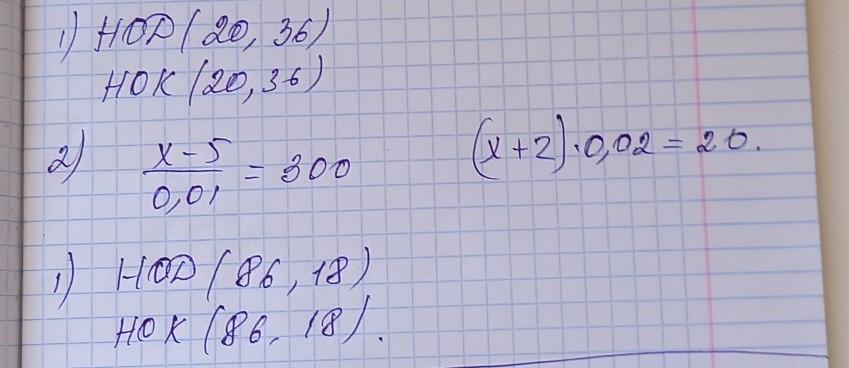 1) НОД (20, 36)
НОК (20, 36)
2) x-5/0,01 = 300
(x+2)·0,02 = 20.
1) НОД (86, 18)
НОК (86, 18).